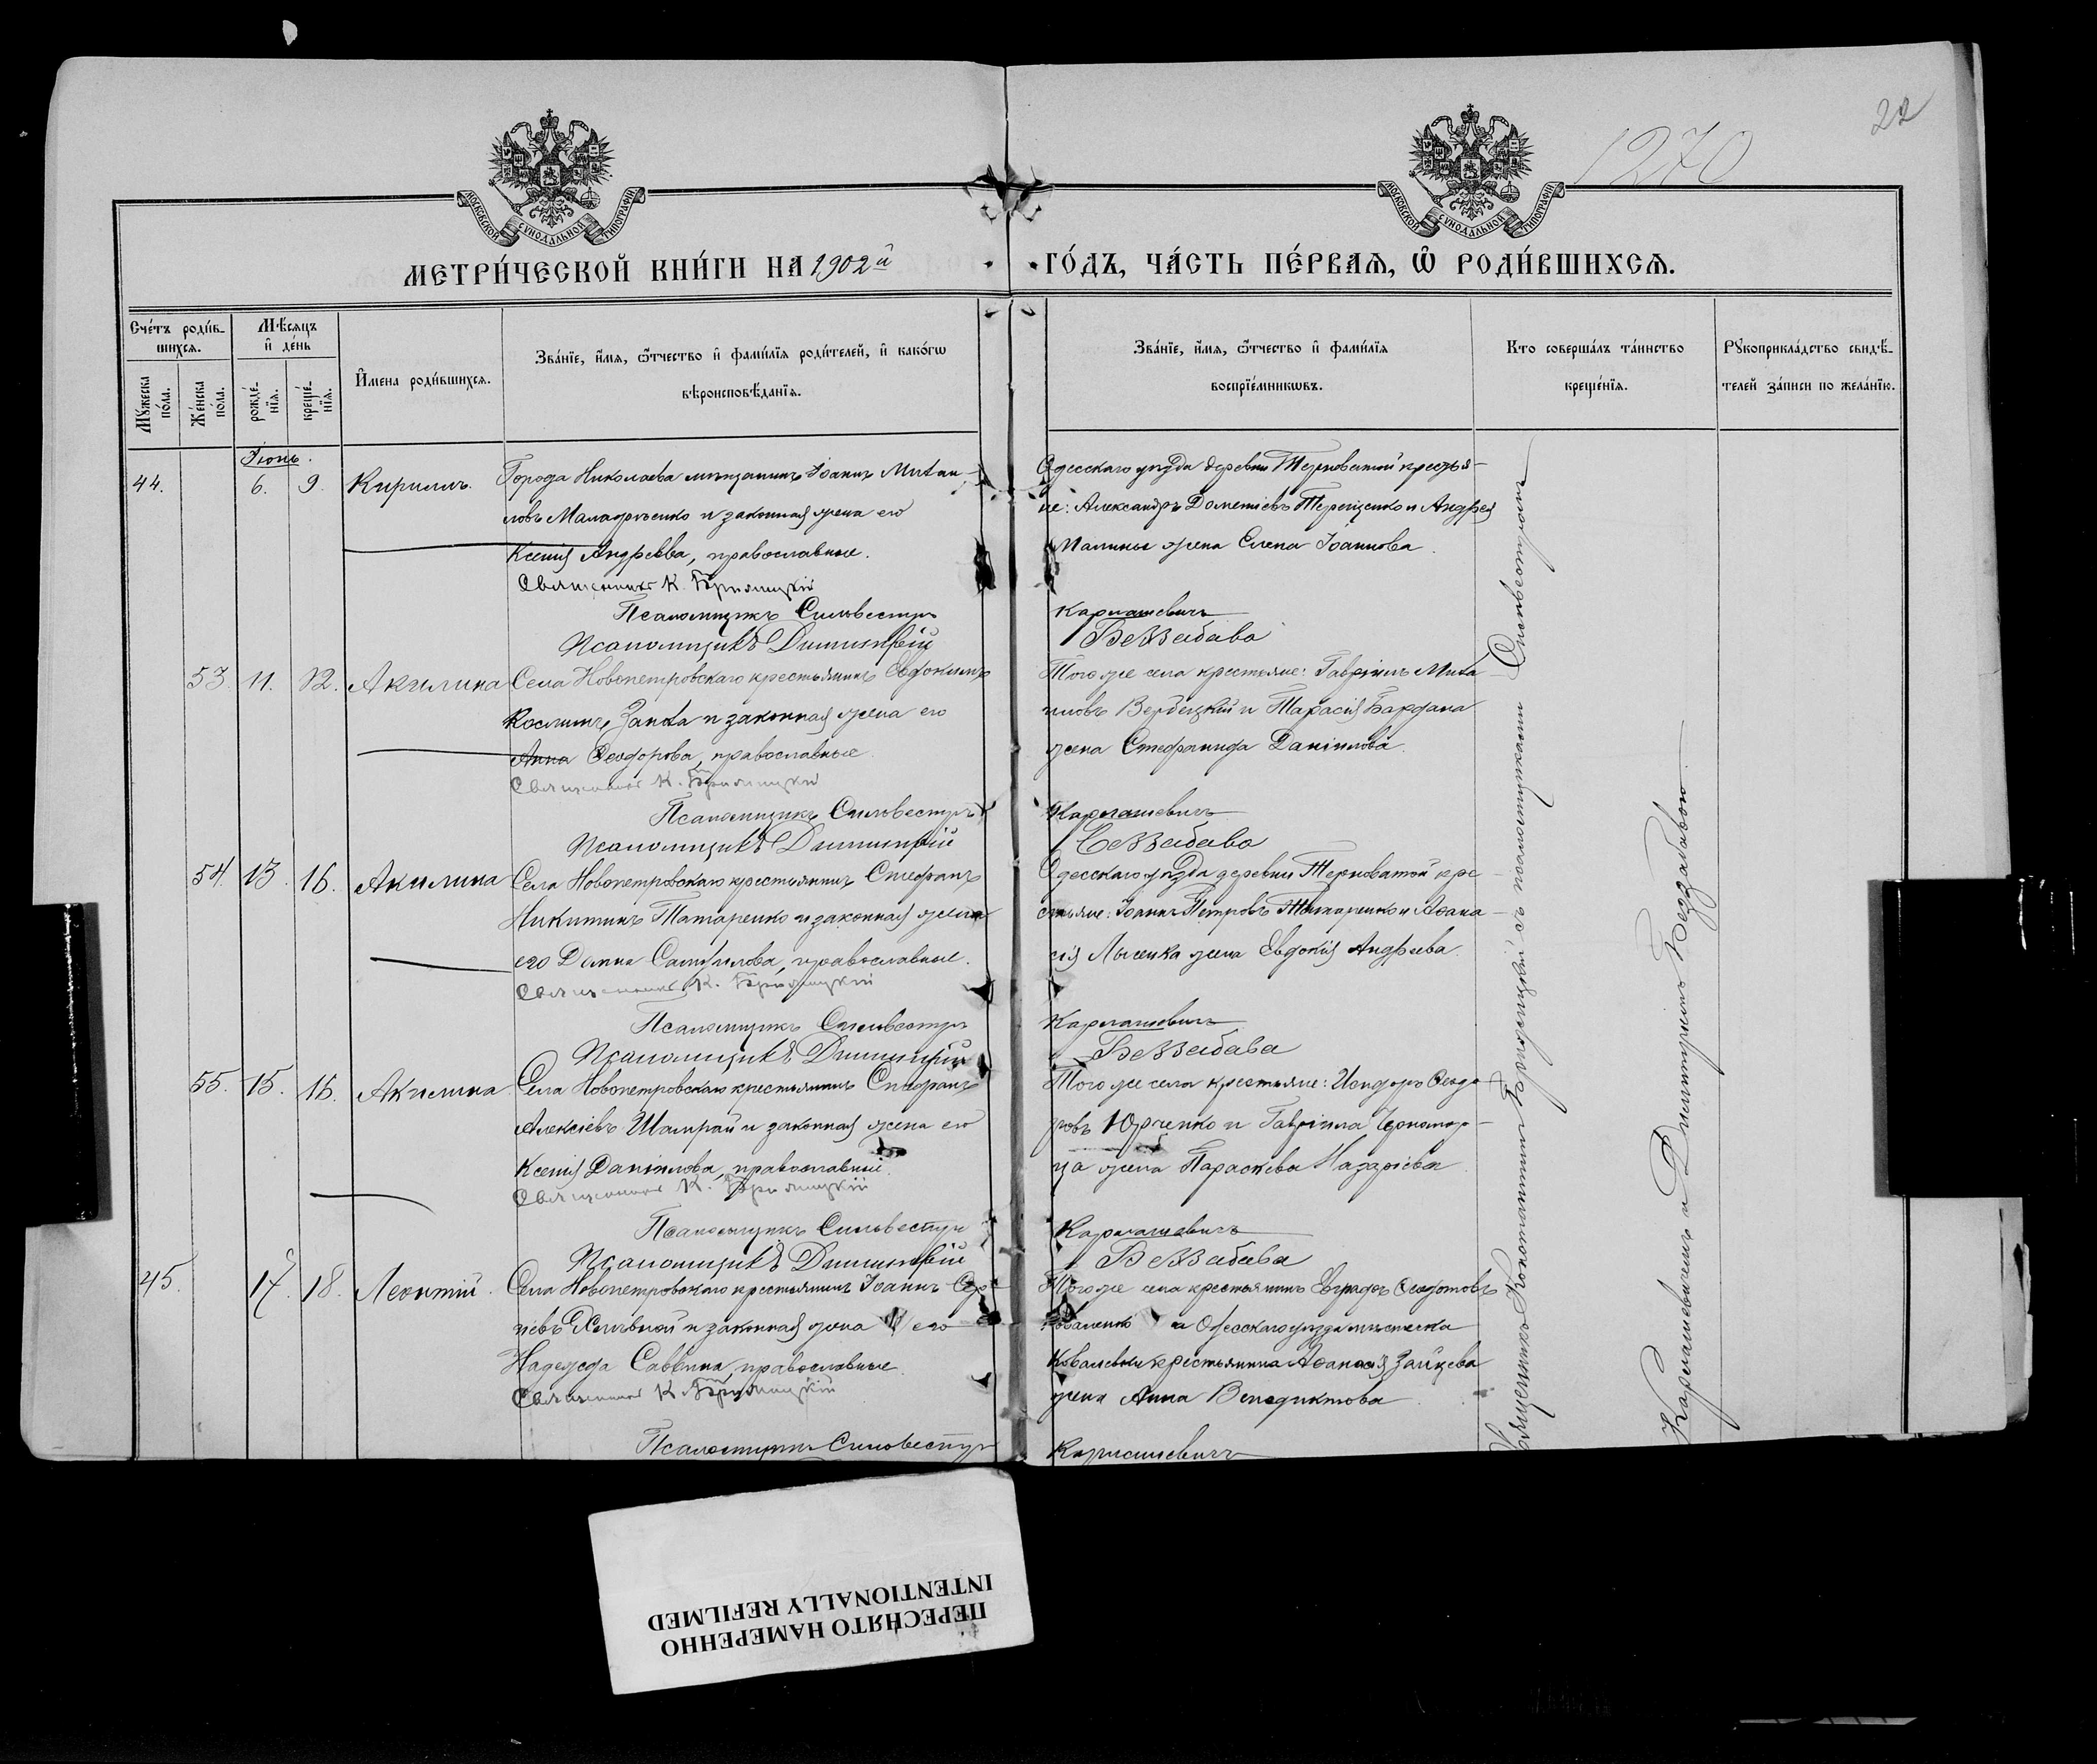 22
1270
МОСКОВСКОЙ СѴНОДАЛЬНОЙ ТИПОГРАФІИ
МОСКОВСКОЙ СѴНОДАЛЬНОЙ ТИПОГРАФІИ
МЕТРИ́ЧЕСКОЙ КНИ́ГИ НА 1902й ГО́ДЪ, ЧА́СТЬ ПЕ́РВАѦ, Ѽ РОДИ́ВШИХСѦ.
Сче́тъ роди́в-
шихсѧ.
Мѣ́сѧцъ
и҆ де́нь
Мꙋ́жеска по́ла.
Же́нска по́ла.
рожде́-
нїѧ.
креще́-
нїѧ.
И҆мена роди́вшихсѧ.
Зва́нїе, и҆́мѧ, ѻ҆́тчество и҆ фами́лїѧ роди́телей, и҆ како́гѡ
вѣроисповѣ́данїѧ.
Зва́нїе, и҆́мѧ, ѻ҆́тчество и҆ фами́лїѧ
воспрїе́мникѡвъ.
Кто соверша́лъ та́инство
креще́нїѧ.
Рꙋкоприкла́дство свидѣ́-
телей за́писи по жела́нїю.
Іюнь.
44. 6. 9. Кириллъ. Города Николаева мѣщанинъ Іоаннъ Михаи-
ловъ и законная жена его
Ксенія Андреева, православные.
Священникъ К.
Псаломщикъ Сильвестръ
Псаломщикъ Димитрій
Одесскаго уѣзда деревни Терноватой крестья-
не: Александръ Дометіевъ Терещенко и Андрея
Малины жена Елена Іоаннова.
Карпашевичъ
Беззабава
53. 11. 12. Акилина Села Новопетровскаго крестьянинъ Евдокимъ
Косминъ Заика и законная жена его
Анна Ѳеодорова, православные.
Священникъ К.
Псаломщикъ Сильвестръ
Псаломщикъ Димитрій
Того же села крестьяне: Гавріилъ Миха-
иловъ Вербецкій и Тарасія Бардана
жена Стефанида Даніилова.
Карпашевичъ
Беззабава
54. 13. 16. Акилина Села Новопетровскаго крестьянинъ Стефанъ
Никитинъ Татаренко и законная жена
его Домна Самуилова, православные.
Священникъ К.
Псаломщикъ Сильвестръ
Псаломщикъ Димитрій
Одесскаго уѣзда деревни Терноватой кре-
стьяне: Іоаннъ Петровъ и Аѳана-
сія Лысенка жена Евдокія Андреева.
Карпашевичъ
Беззабава
55. 15. 16. Акилина Села Новопетровскаго крестьянинъ Стефанъ
Алексіевъ Шамрай и законная жена его
Ксенія Даніилова, православные.
Священникъ К.
Псаломщикъ Сильвестръ
Псаломщикъ Димитрій
Того же села крестьяне: Исидоръ Ѳеодо-
ровъ Юрченко и Гавріила Черномор-
ца жена Параскева Назаріева.
Карпашевичъ
Беззабава
45. 17. 18. Леонтій. Села Новопетровскаго крестьянинъ Іоаннъ Сер-
гіевъ и законная жена его
Надежда Саввина, православные.
Священникъ К.
Псаломщикъ Сильвестръ
Того же села крестьянинъ Евграфъ Ѳеодотовъ
и Одесскаго уѣзда мѣстечка
Ковалевки крестьянина Аѳанасія Зайцева
жена Анна Венедиктова.
Карпашевичъ
Священникъ Константинъ съ псаломщиками Сильвестромъ
Карпашевичемъ и Димитріемъ Беззабавою
ПЕРЕСНЯТО НАМЕРЕННО
INTENTIONALLY REFILMED